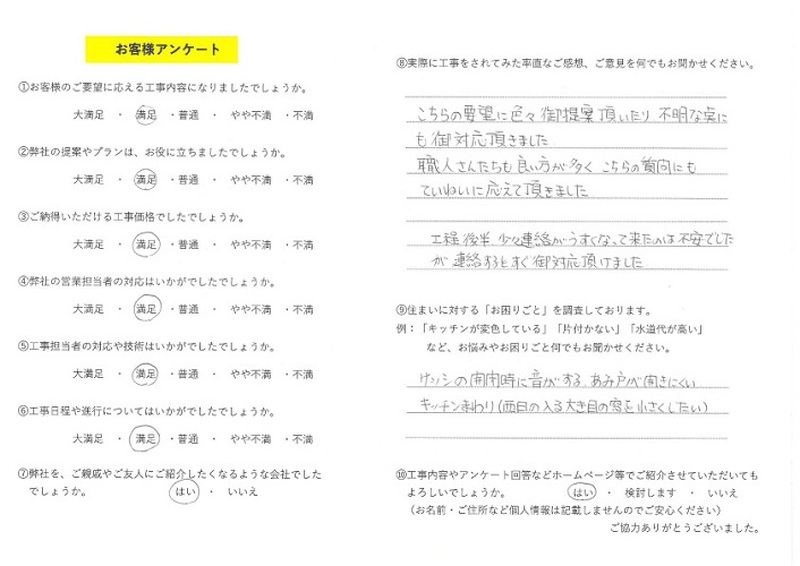 お客様アンケート
①お客様のご要望に応える工事内容になりましたでしょうか。
大満足 ・ 満足 ・普通 ・ やや不満 ・不満
②弊社の提案やプランは、お役に立ちましたでしょうか。
大満足 ・ 満足 ・普通 ・ やや不満 ・不満
③ご納得いただける工事価格でしたでしょうか。
大満足 ・ 満足 ・普通 ・ やや不満 ・不満
④弊社の営業担当者の対応はいかがでしたでしょうか。
大満足 ・ 満足 ・普通 ・ やや不満 ・不満
⑤工事担当者の対応や技術はいかがでしたでしょうか。
大満足 ・ 満足 ・普通 ・ やや不満 ・不満
⑥工事日程や進行についてはいかがでしたでしょうか。
大満足 ・ 満足 ・普通 ・ やや不満 ・不満
⑦弊社を、ご親戚やご友人にご紹介したくなるような会社でした
でしょうか。 はい ・ いいえ
⑧実際に工事をされてみた率直なご感想、ご意見を何でもお聞かせください。
こちらの要望に色々御提案頂いたり 不明な点に
も御対応頂きました
職人さんたちも良い方が多く こちらの質問にも
ていねいに応えて頂きました
工程後半、少々連絡がうすくなって来たのは不安でした
が 連絡するとすぐ御対応頂けました
⑨住まいに対する「お困りごと」を調査しております。
例：「キッチンが変色している」「片付かない」「水道代が高い」
など、お悩みやお困りごと何でもお聞かせください。
の開閉時に音がする あみ戸が開きにくい
キッチンまわり(西日の入る大き目の窓を小さくしたい)
⑩工事内容やアンケート回答などホームページ等でご紹介させていただいても
よろしいでしょうか。 はい ・ 検討します ・ いいえ
（お名前・ご住所など個人情報は記載しませんのでご安心ください）
ご協力ありがとうございました。